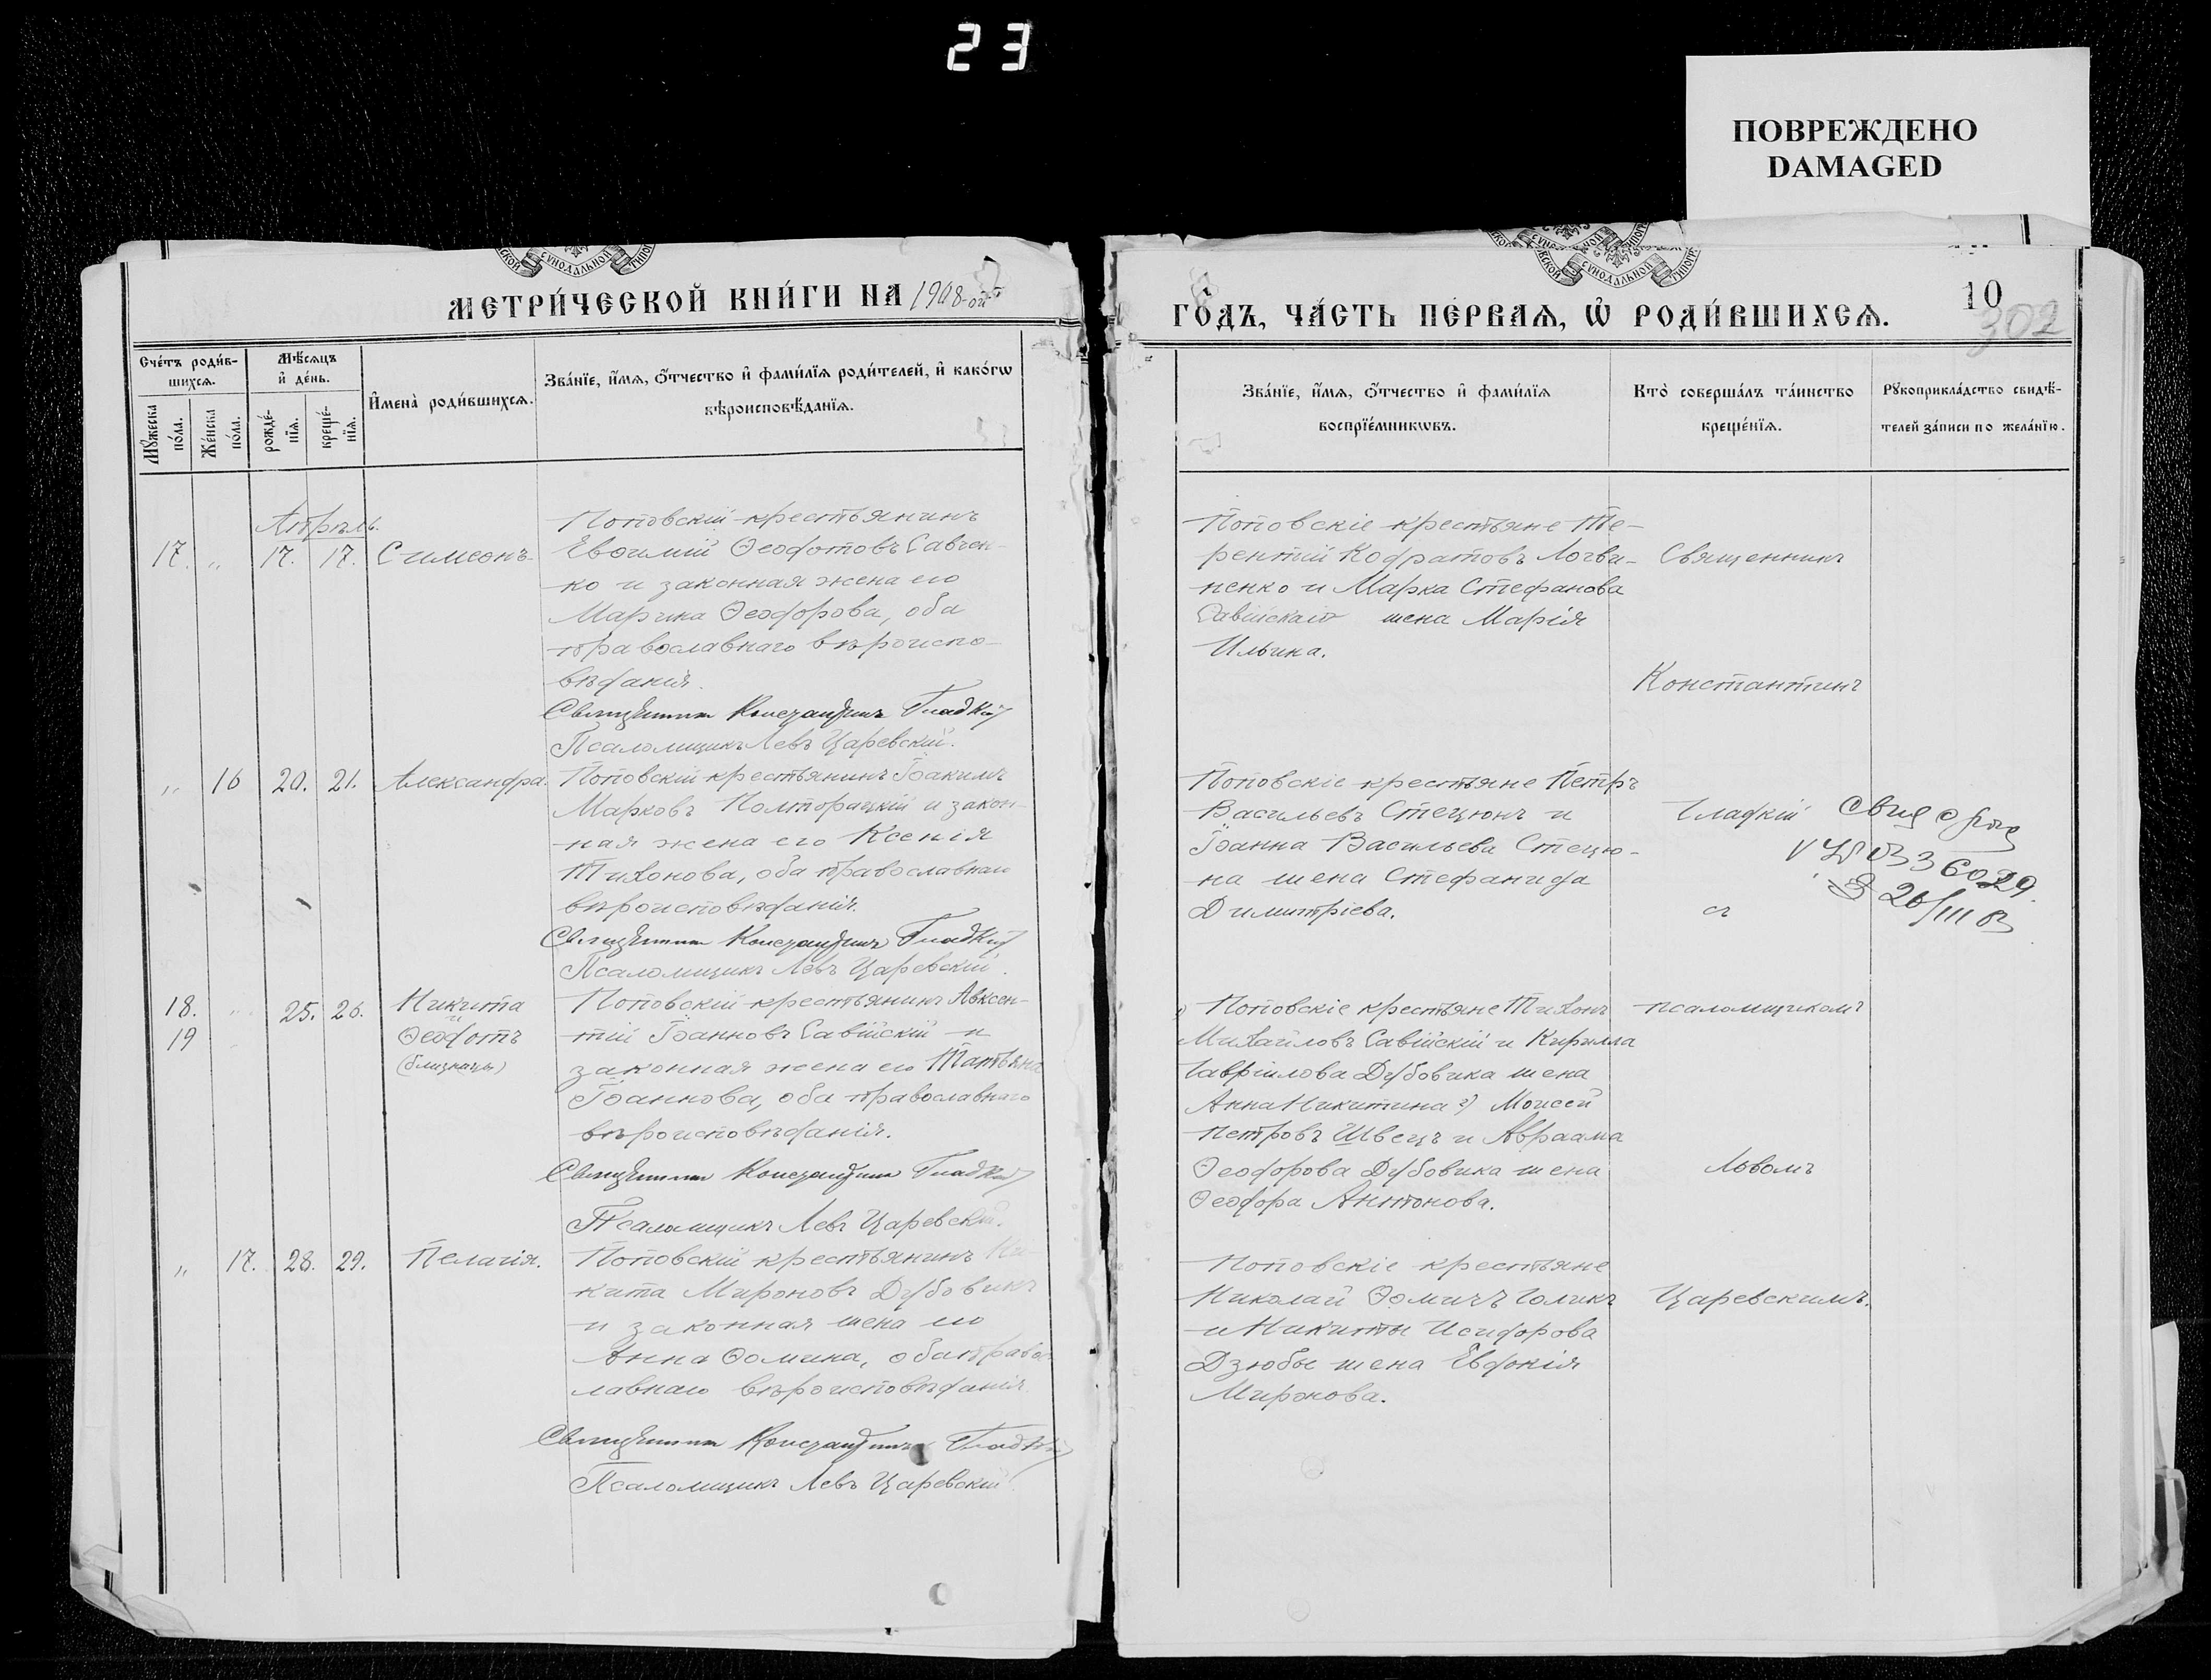 23
ПОВРЕЖДЕНО
DAMAGED
СѴНОДАЛЬНОЙ
СѴНОДАЛЬНОЙ
МЕТРИ́ЧЕСКОЙ КНИ́ГИ НА 1908-ой
ГО́ДЪ, ЧА́СТЬ ПЕ́РВАѦ, Ѡ҆ РОДИ́ВШИХСѦ.
10
302
Сче́тъ роди́в-
шихсѧ.
Мѣ́сѧцъ
и҆ де́нь.
Мꙋ́жеска
по́ла.
Же́нска
по́ла.
рожде́-
нїѧ.
креще́-
нїѧ.
И҆мена̀ роди́вшихсѧ.
Зва́нїе, и҆́мѧ, ѻ҆́тчество и҆ фами́лїѧ роди́телей, и҆ како́гѡ
вѣроисповѣ́данїѧ.
Зва́нїе, и҆́мѧ, ѻ҆́тчество и҆ фами́лїѧ
воспрїе́мникѡвъ.
Кто̀ соверша́лъ та́инство
креще́нїѧ.
Рꙋкоприкла́дство свидѣ́-
телей за́писи по жела́нїю.
Апрѣль.
17. „ 17. 17. Симеонъ
Поповскій крестьянинъ
Евѳимій Ѳеодотовъ Савчен-
ко и законная жена его
Марѳа Ѳеодорова, оба
православнаго вѣроиспо-
вѣданія.
Священникъ Константинъ Гладкій
Псаломщикъ Левъ Царевскій.
Поповскіе крестьяне Те-
рентій Кодратовъ Логви-
ненко и Марка Стефанова
Савійскаго жена Марія
Ильина.
Священникъ
Константинъ
„ 16 20. 21. Александра.
Поповскій крестьянинъ Іоакимъ
Марковъ Полторацкій и закон-
ная жена его Ксенія
Тихонова, оба православнаго
вѣроисповѣданія.
Священникъ Константинъ Гладкій
Псаломщикъ Левъ Царевскій.
Поповскіе крестьяне Петръ
Васильевъ Стецюнъ и
Іоанна Васильева Стецю-
на жена Стефанида
Димитріева.
Гладкій
съ
Свид о рож
V УР 0336029.
26/III 83
18. „ 25. 26. Никита
19 и
Ѳеодотъ
(близнецы)
Поповскій крестьянинъ Авксен-
тій Іоанновъ Савійскій и
законная жена его Татьяна
Іоаннова, оба православнаго
вѣроисповѣданія.
Священникъ Константинъ Гладкій
Псаломщикъ Левъ Царевскій.
Поповскіе крестьяне Тихонъ
Михайловъ Савійскій и Кирилла
Гавріилова Дубовика жена
Анна Никитина 2) Моисей
Петровъ Швецъ и Авраама
Ѳеодорова Дубовика жена
Ѳеодора Антонова.
псаломщикомъ
Львомъ
„ 17. 28. 29. Пелагія.
Поповскій крестьянинъ Ни-
кита Мироновъ Дубовикъ
и законная жена его
Анна Ѳомина, оба правос-
лавнаго вѣроисповѣданія.
Священникъ Константинъ Гладкій
Псаломщикъ Левъ Царевскій.
Поповскіе крестьяне
Николай Ѳомичъ Голикъ
и Никиты Исидорова
Дзюбы жена Евдокія
Миронова.
Царевскимъ.